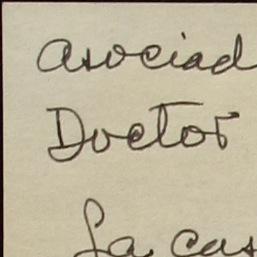 asociad
Doctor
La cas